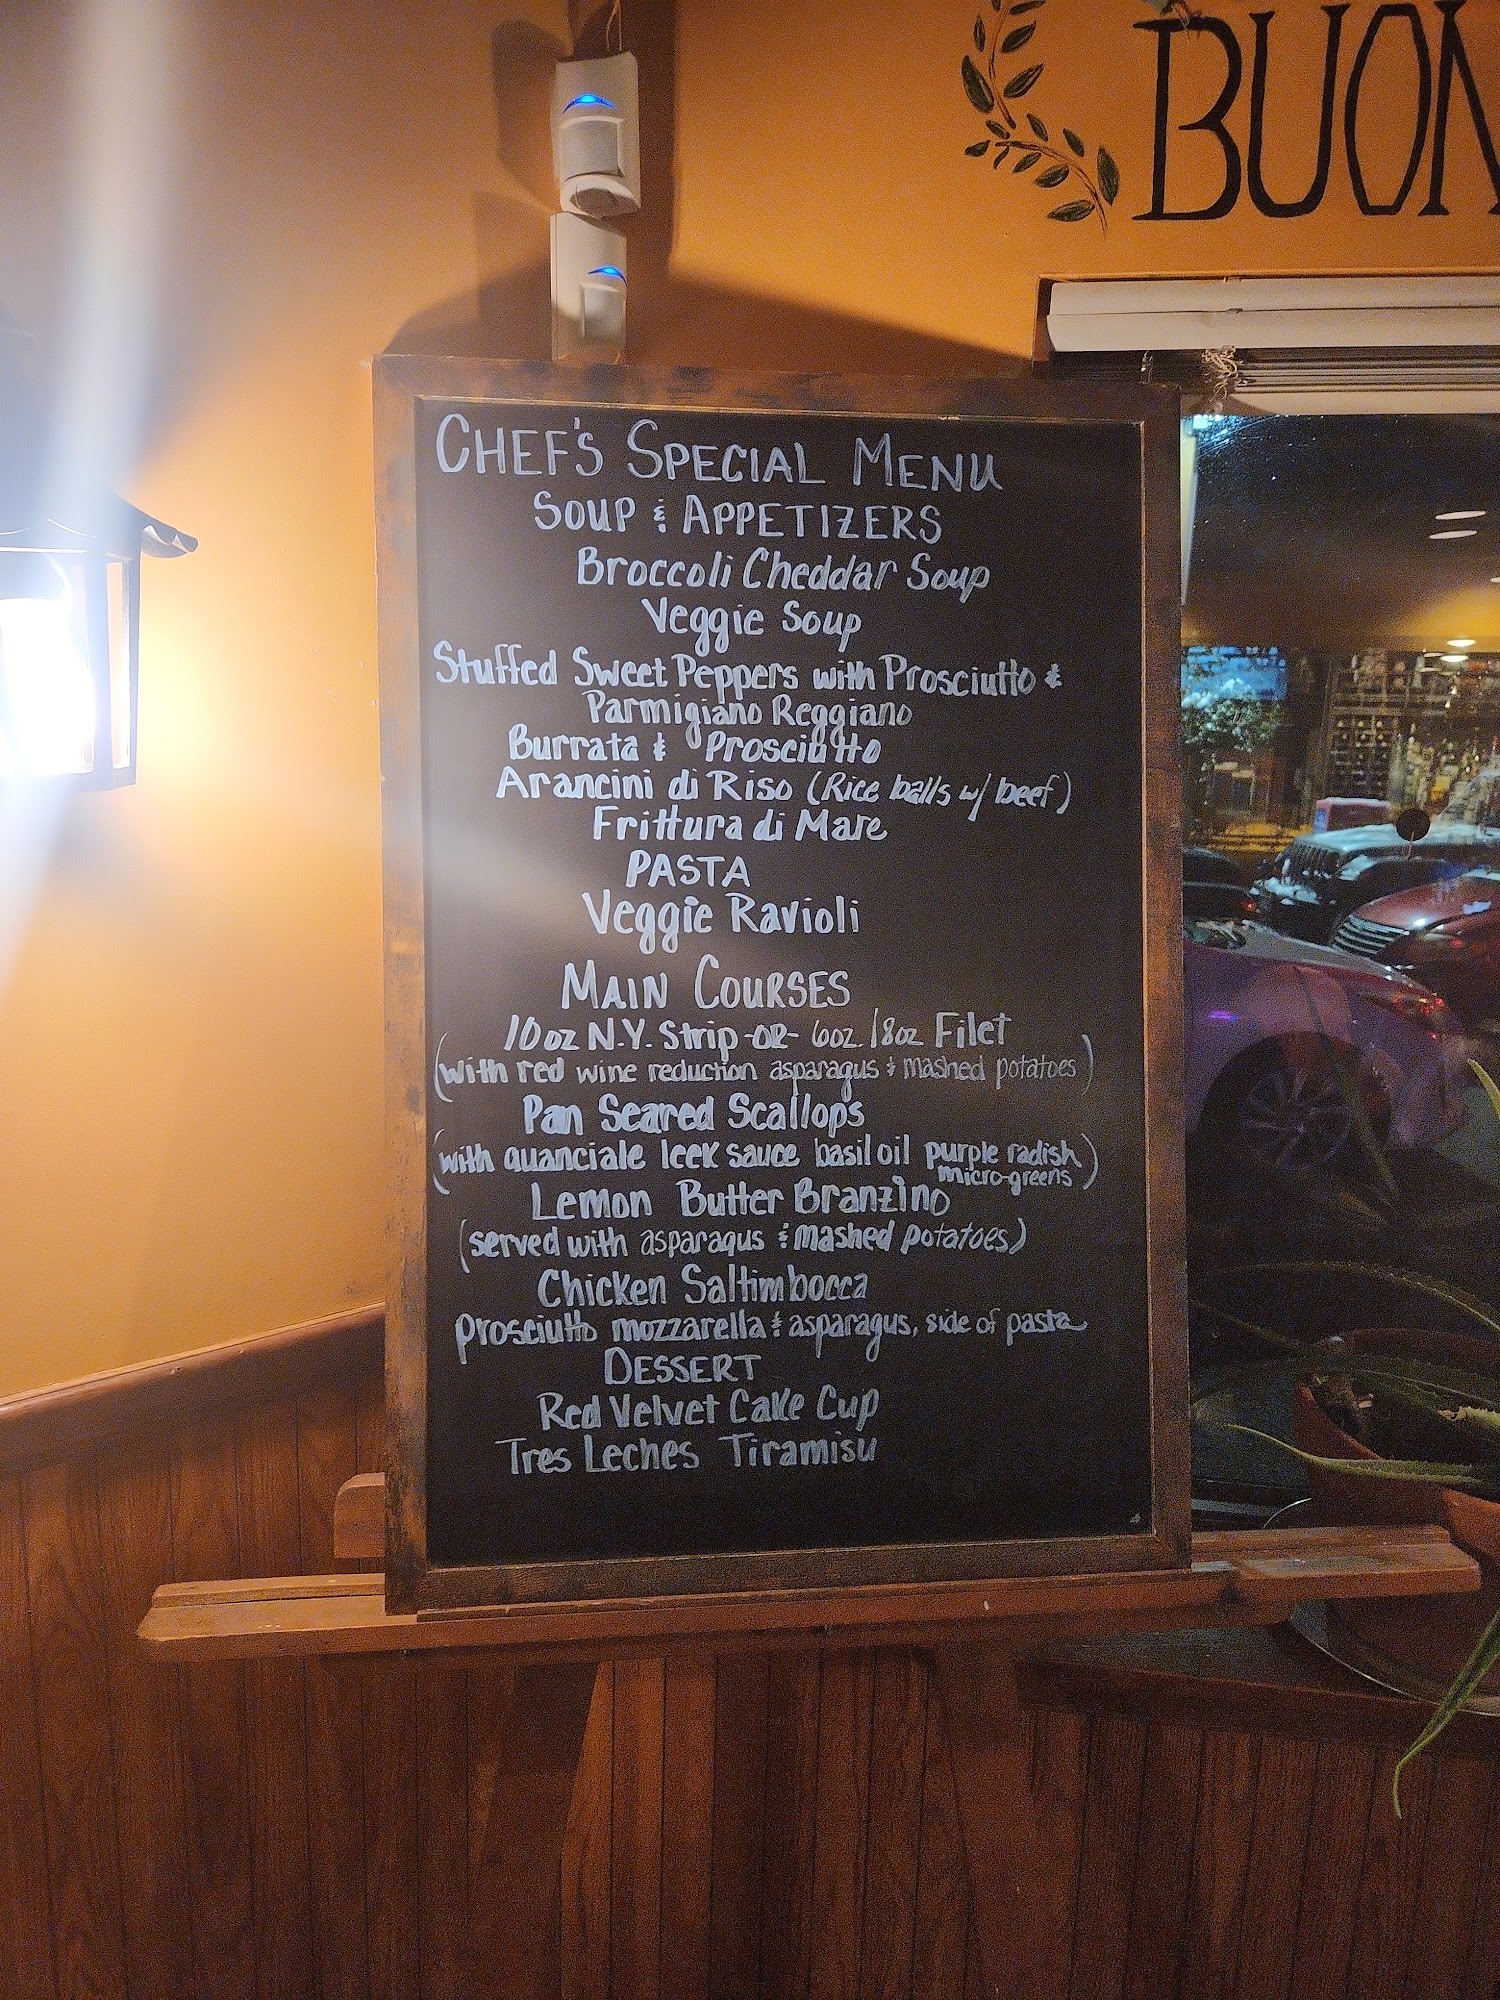 BUON
CHEF'S SPECIAL MENU
SOUP & APPETIZERS
Broccoli Cheddar Soup
Veggie Soup
Stuffed Sweet Peppers with Prosciutto &
Parmigiano Reggiano
Burrata & Prosciutto
Arancini di Riso (Rice balls w/ beef)
Frittura di Mare
PASTA
Veggie Ravioli
MAIN COURSES
10oz N.Y. Strip -OR- 6oz. /8oz Filet
(with red wine reduction asparagus & mashed potatoes)
Pan Seared Scallops
(with quanciale leek sauce basil oil purple radish
micro-greens)
Lemon Butter Branzino
(served with asparagus & mashed potatoes)
Chicken Saltimbocca
prosciutto mozzarella & asparagus, side of pasta
DESSERT
Red Velvet Cake Cup
Tres Leches Tiramisu